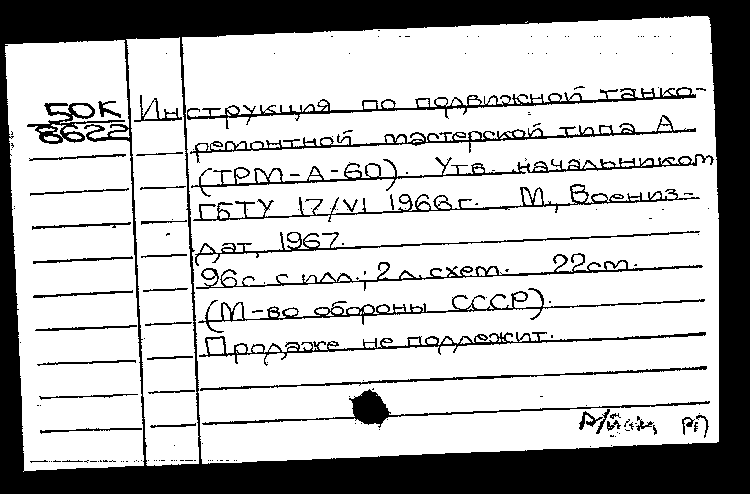 50К
8622
Инструкция по подвижной танко-
ремонтной мастерской типа А
(ТРМ-А-60). Утв. начальником
ГБТУ 17/VI 1966 г. М., Воениз-
дат, 1967.
96 с. с илл.; 2 л. схем. 22 см.
(М-во обороны СССР).
Продаже не подлежит.
РП